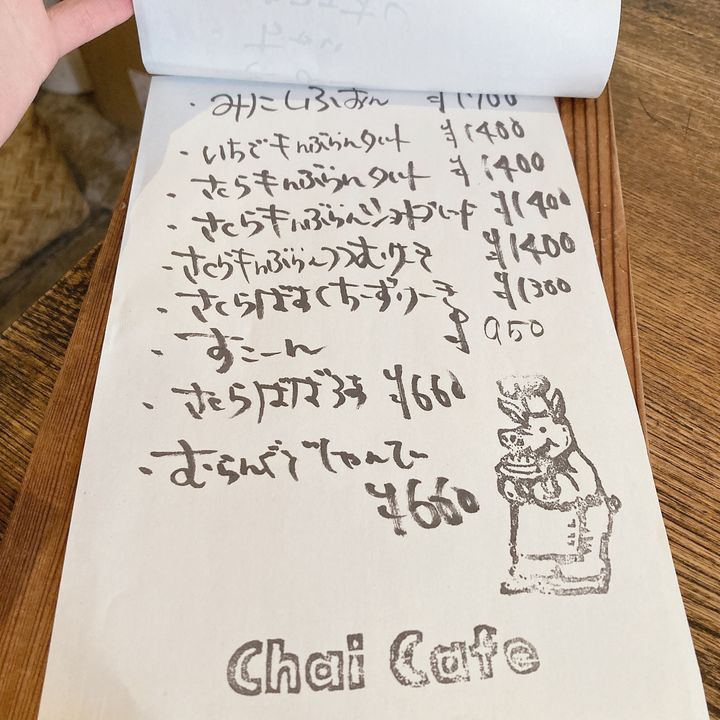 ・みにしふぉん ¥1700
・いちごもんぶらんタルト ¥1400
・さくらもんぶらんタルト ¥1400
・さくらもんぶらんショコラ ¥1400
・さくらもんぶらん ¥1400
・さくらばすくちーずけーき ¥1300
・すこーん ¥950
・さくらばばろあ ¥660
・むらんぐしゃんてぃー
¥660
Chai Cafe